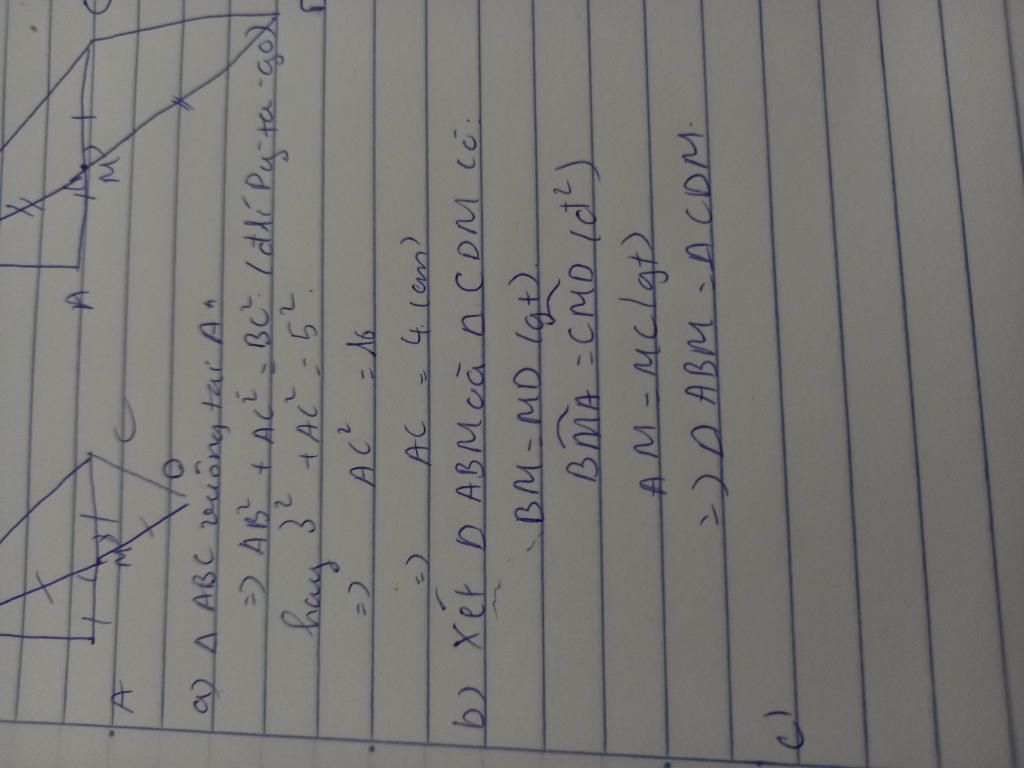 A
M
C
D
A
M
a) Δ ABC vuông tại A
=) AB² + AC² = BC² (đlí Py-ta-go)
hay 3² + AC² = 5²
=) AC² = 16
=) AC = 4 (cm)
b) Xét Δ ABM và Δ CDM có:
BM = MD (gt)
BMA = CMD (đ²)
AM = MC (gt)
=) Δ ABM = Δ CDM.
c)